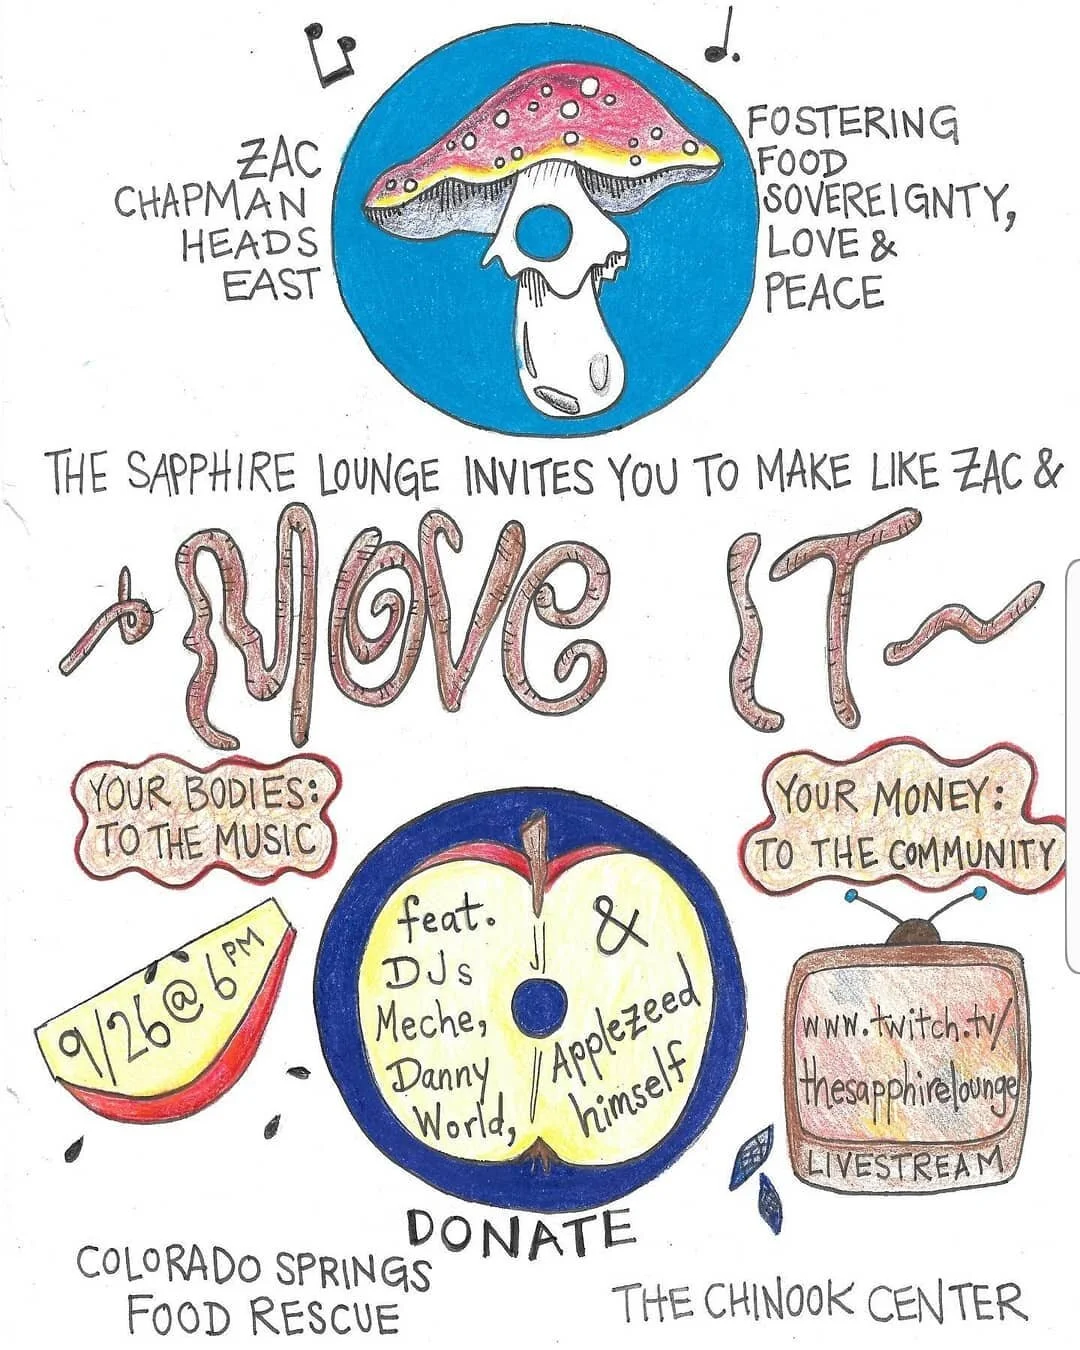 ZAC
CHAPMAN
HEADS
EAST
FOSTERING
FOOD
SOVEREIGNTY,
LOVE &
PEACE
THE SAPPHIRE LOUNGE INVITES YOU TO MAKE LIKE ZAC &
MOVE IT
YOUR BODIES:
TO THE MUSIC
YOUR MONEY:
TO THE COMMUNITY
9/26 @ 6PM
feat.
DJs
Meche,
Danny
World,
&
Applezeed
himself
www.twitch.tv/
thesapphirelounge
LIVESTREAM
DONATE
COLORADO SPRINGS
FOOD RESCUE
THE CHINOOK CENTER